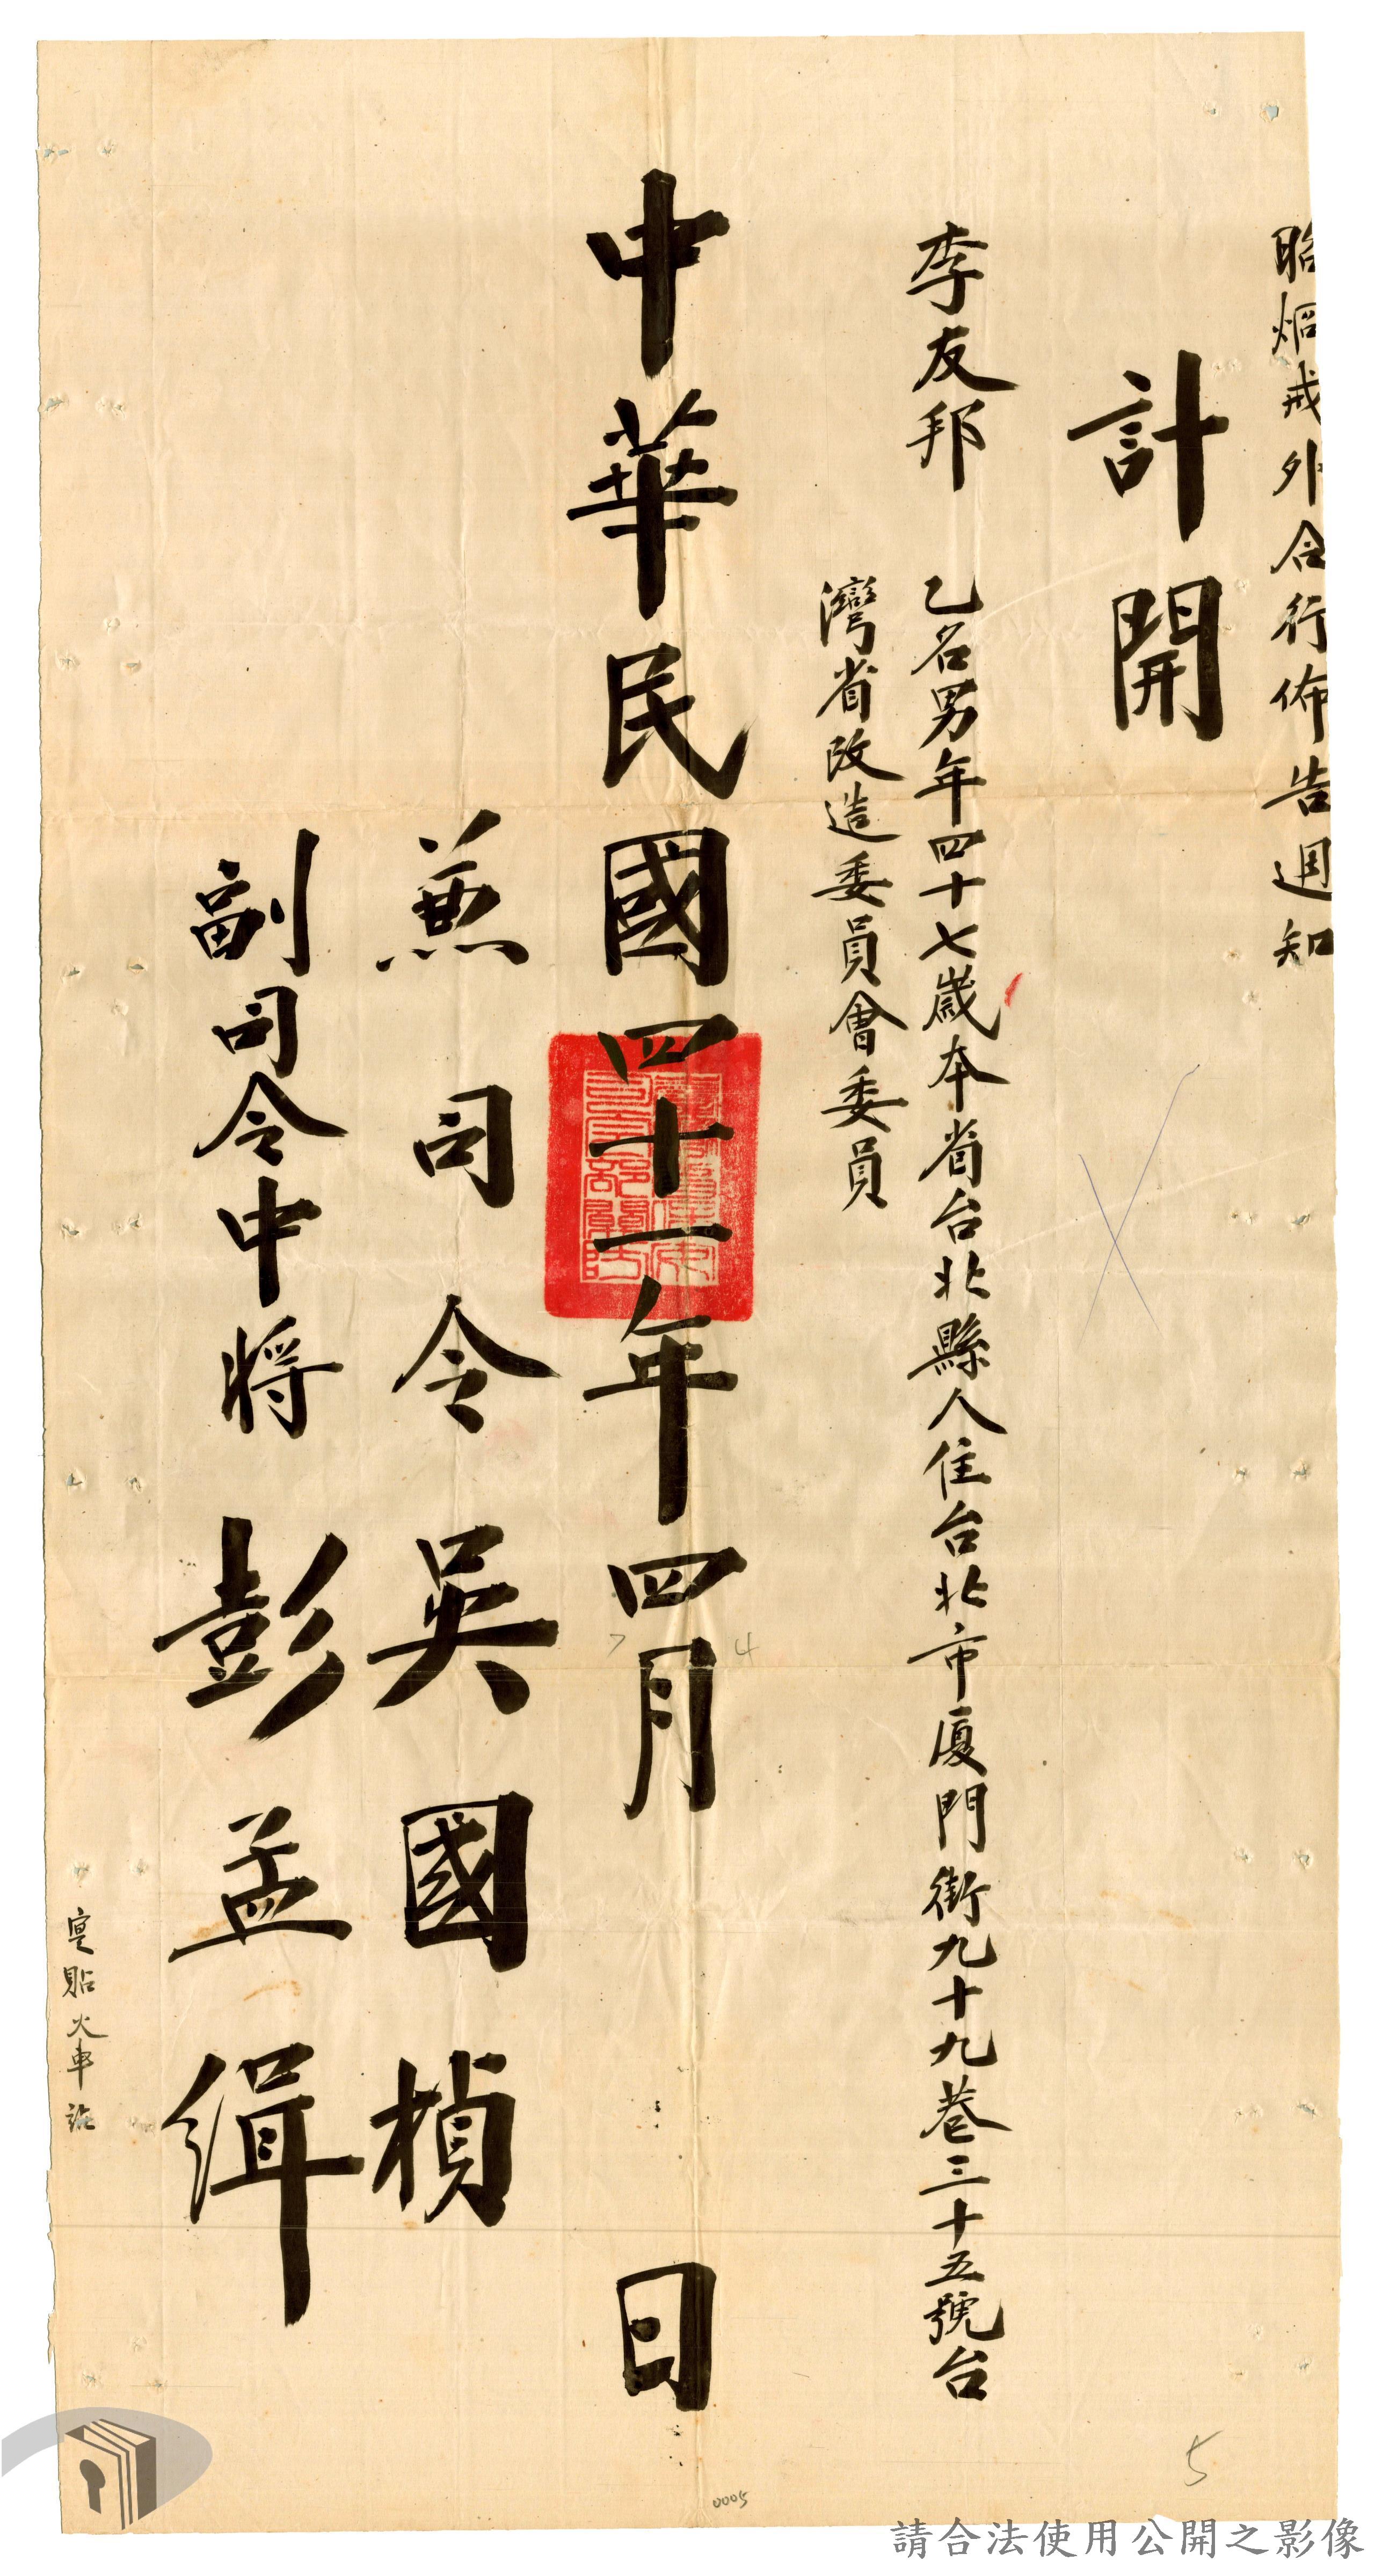 昭炯戒外合行佈告週知
計開
李友邦 乙名男年四十七歲本省台北縣人住台北市廈門街九十九巷三十五號台
灣省改造委員會委員
中華民國四十一年四月 日
兼司令吳國楨
副司令中將彭孟緝
實貼火車站
7 4
5
0005
請合法使用公開之影像